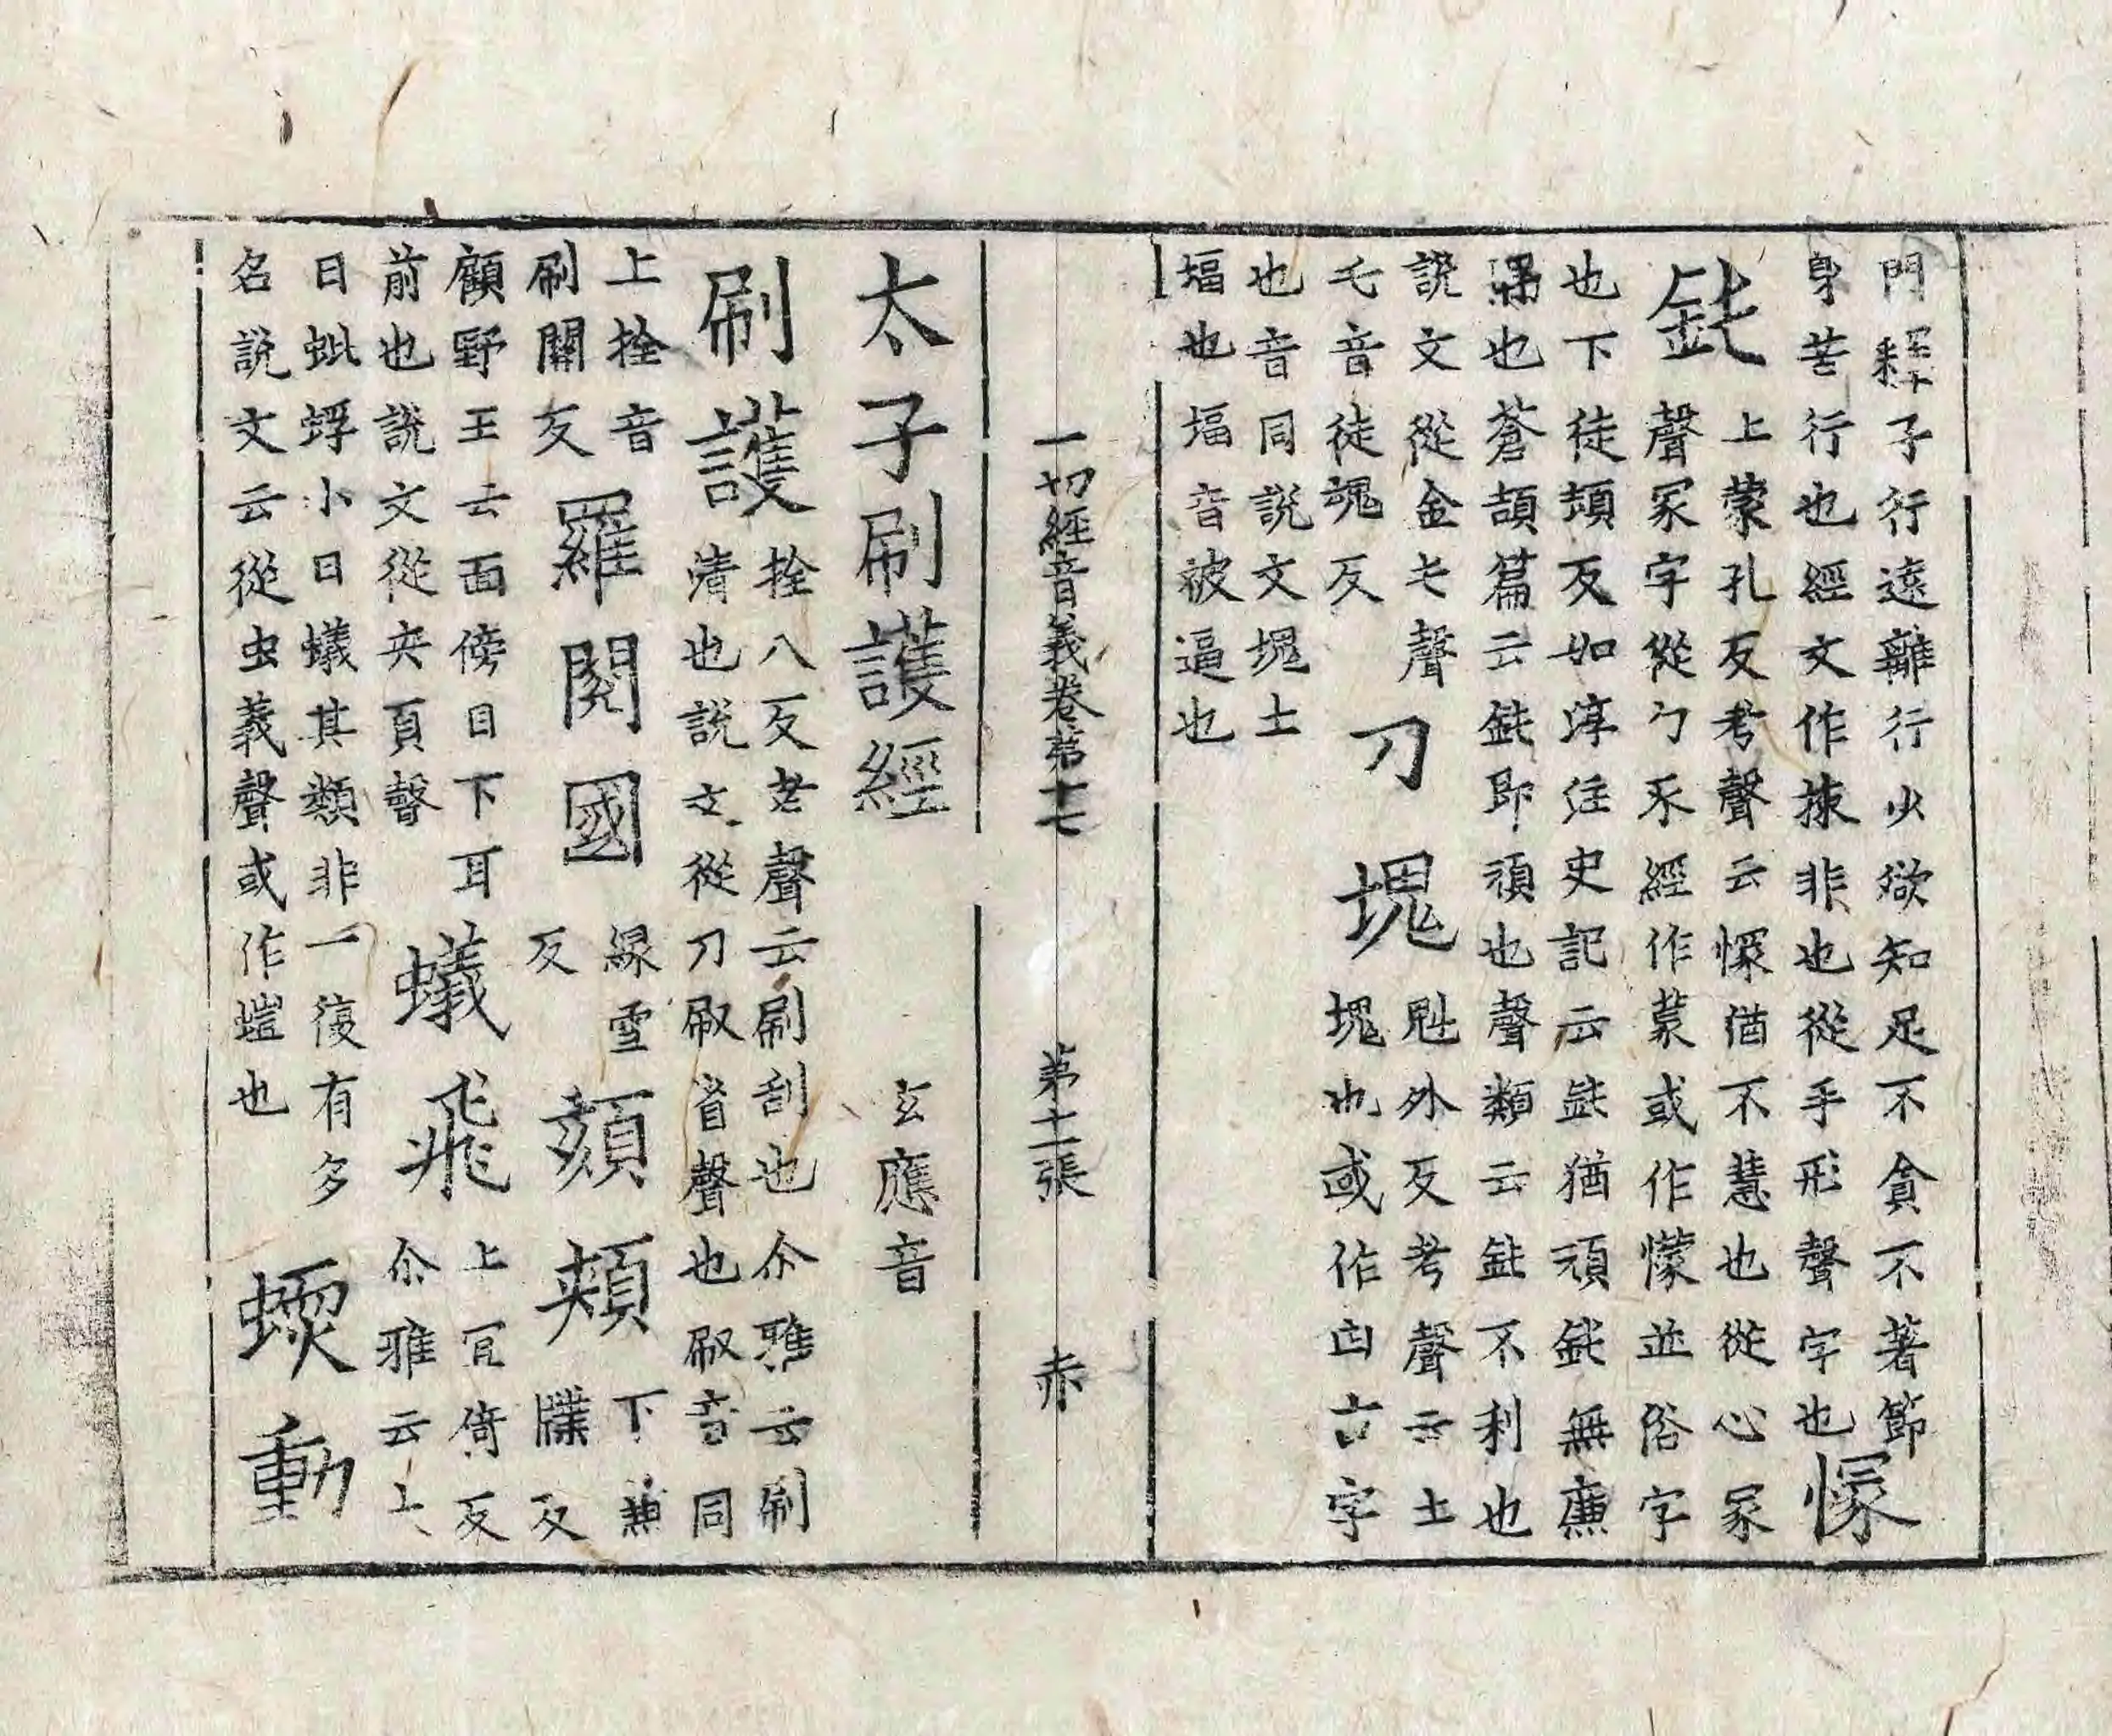 門釋子行行遠離行少欲知足不貪不著節
身苦行也經文作揀非也從手形聲字也懞
鈍上蒙孔反考聲云懞偤不慧也從心冡
聲冡字從冖豕經作蒙或作懞並俗字
也下徒頓反如淳注史記云鈍猶頑鈍無廉
隅也蒼頡篇云鈍即頑也聲類云鈍不利也
說文從金屯聲
乇音徒魂反刀塊魁外反考聲云土
塊也或作凷古字
也音同說文塊土
堛也堛音被逼也
一切經音義卷第十七 第十二張 赤
太子刷護經 玄應音
刷護拴八反考聲云刷刮也尒雅云刷
清也說文從刀㕞省聲也㕞音同
上拴音
刷關反羅閱國緣雪
反頦頰下兼
牒反
顧野王云面傍目下耳
前也說文從夾頁聲蟻飛上冝倚反
尒雅云上
曰蚍蜉小曰蟻其類非一復有多
名說文云從虫義聲或作螘也蝡動